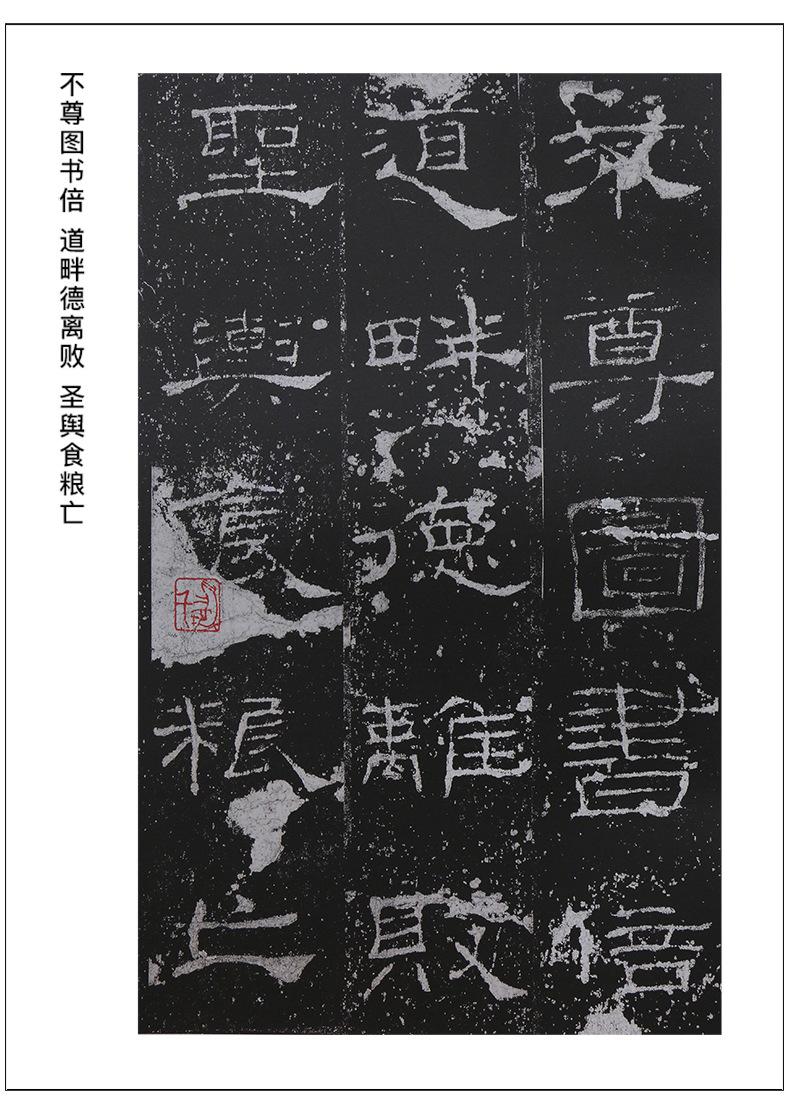 不尊圖書倍
道畔德離敗
聖輿食粮亡
不尊图书倍 道畔德离败 圣舆食粮亡